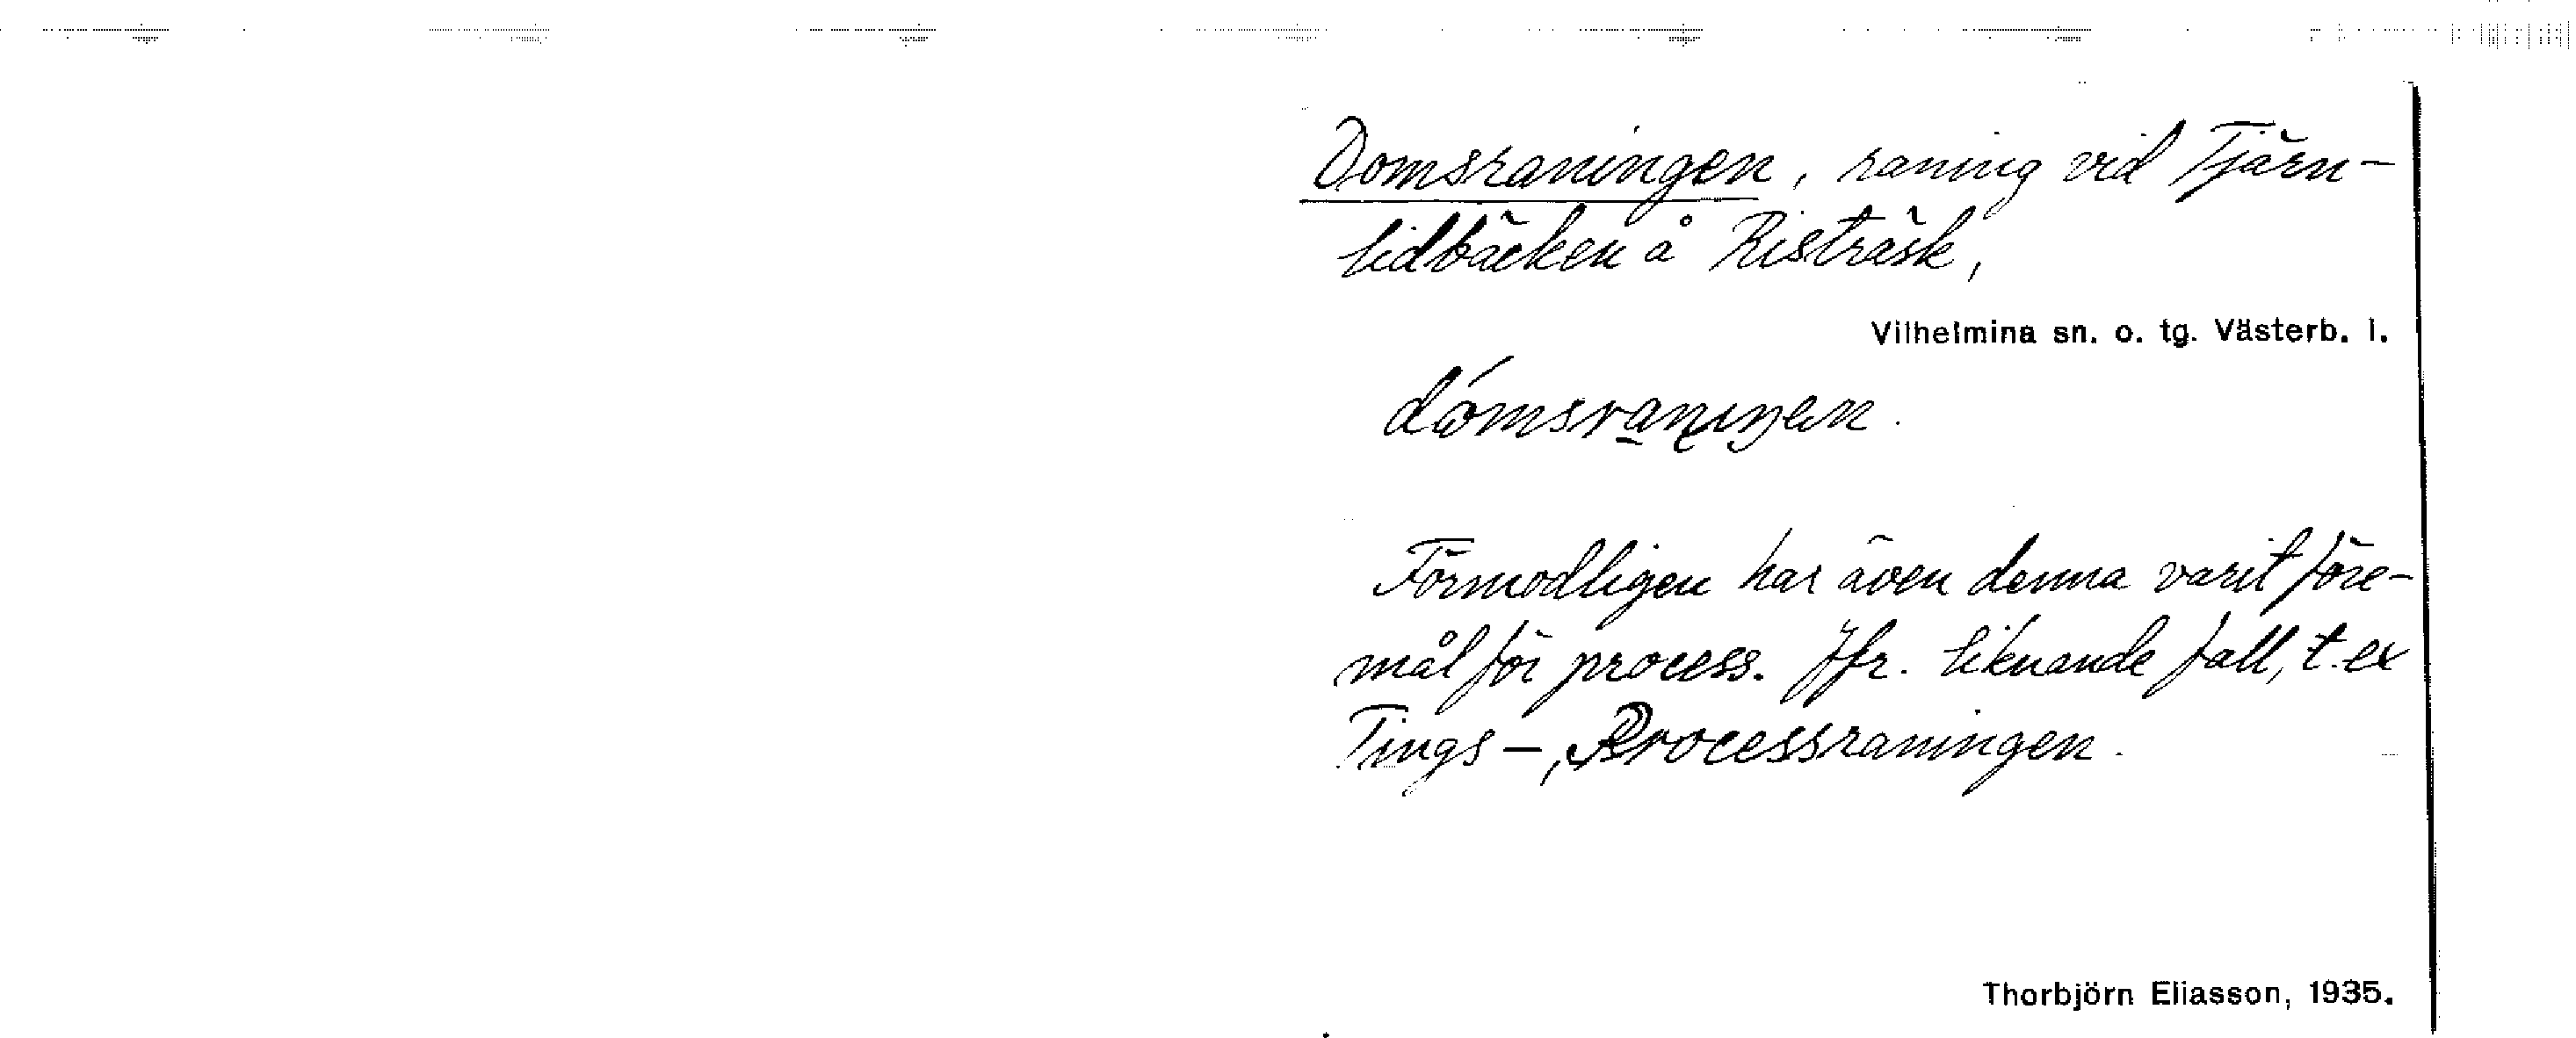 Domsraningen, raning vid Tjärn-
lidbäcken å Risträsk,
Vilhelmina sn. o. tg. Västerb. l.
dómsranıŋen.
Förmodligen har även denna varit före-
mål för process. Jfr. liknande fall, t.ex
Tings-, Processraningen.
Thorbjörn Eliasson, 1935.